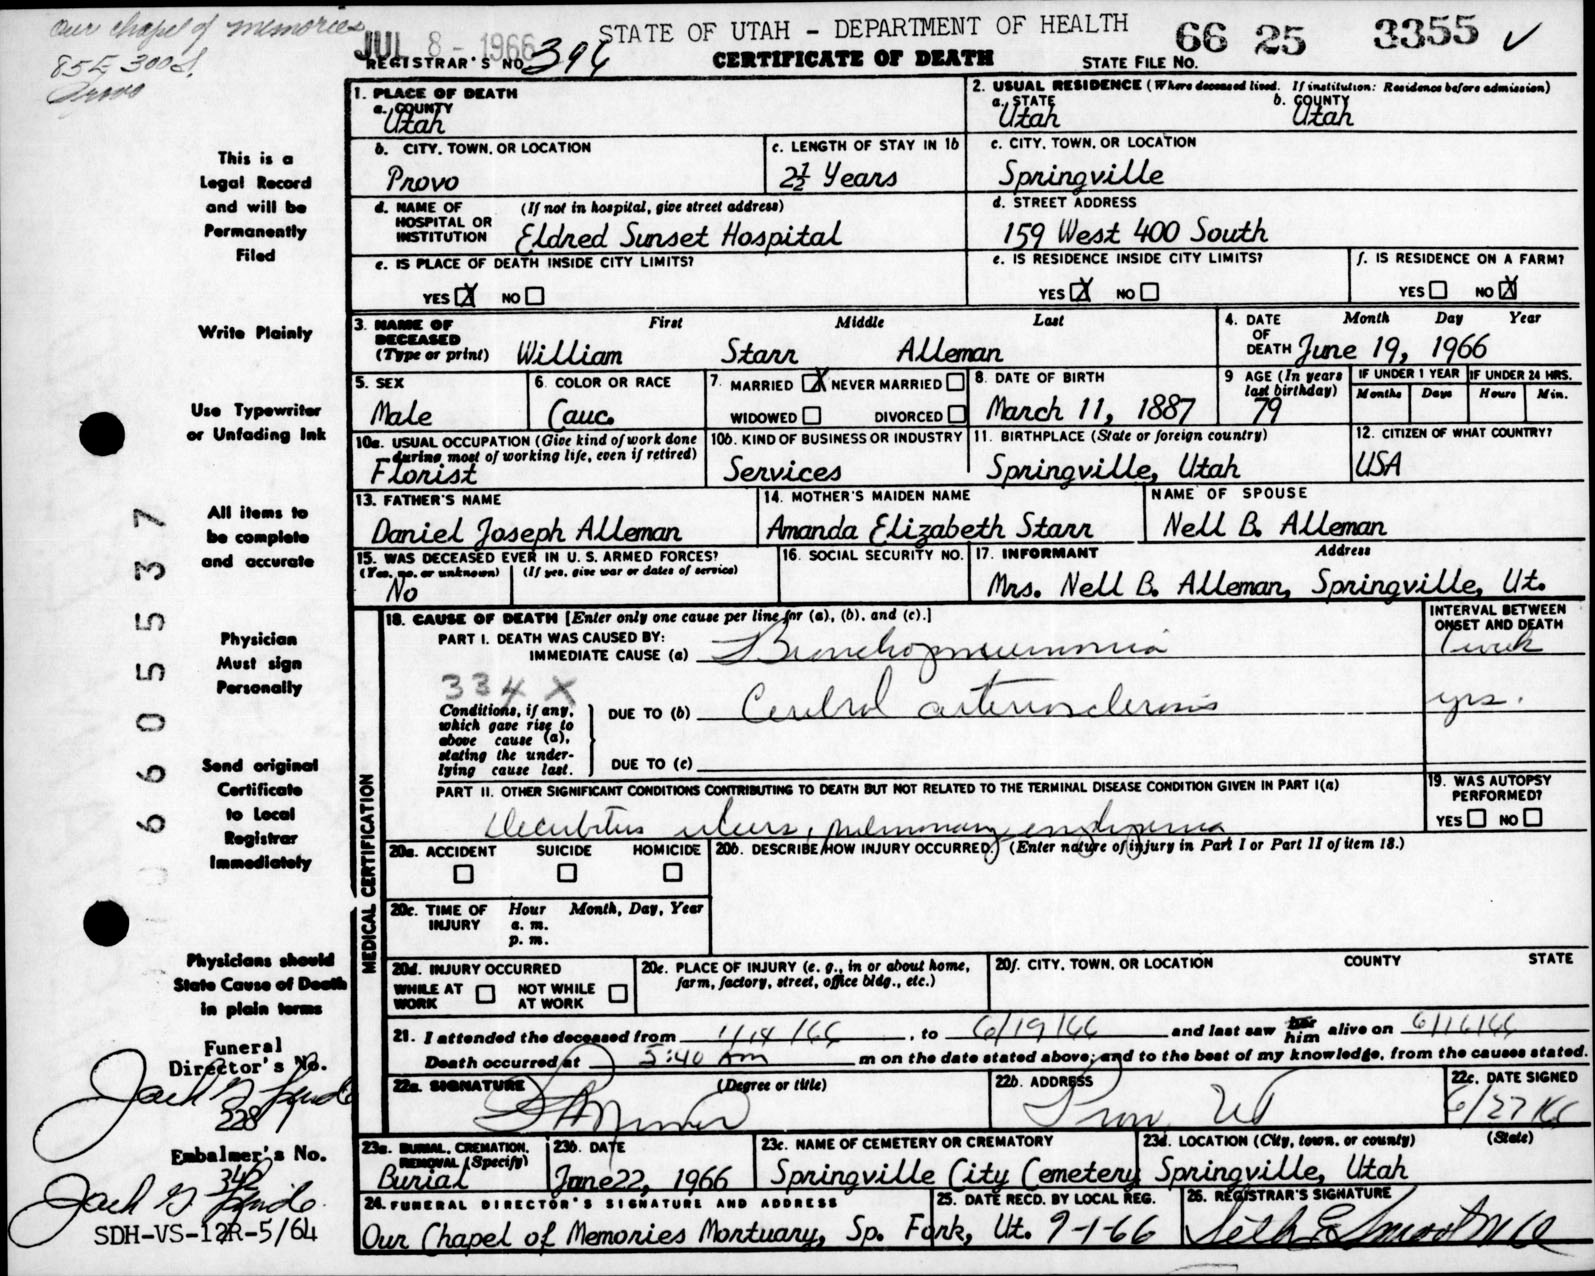 Our chapel of memories
85 E 300 S.
Provo
JUL 8 - 1966
STATE OF UTAH - DEPARTMENT OF HEALTH
66 25 3355
REGISTRAR'S NO. 396
CERTIFICATE OF DEATH
STATE FILE NO.
This is a
Legal Record
and will be
Permanently
Filed
Write Plainly
Use Typewriter
or Unfading Ink
All items to
be complete
and accurate
Physician
Must sign
Personally
Send original
Certificate
to Local
Registrar
Immediately
Physicians should
State Cause of Death
in plain terms
Funeral
Director's No.
228
Embalmer's No.
342
SDH-VS-12R-5/64
0660055537
1. PLACE OF DEATH
a. COUNTY
Utah
2. USUAL RESIDENCE (Where deceased lived. If institution: Residence before admission)
a. STATE
Utah
b. COUNTY
Utah
b. CITY, TOWN, OR LOCATION
Provo
c. LENGTH OF STAY IN 1b
2½ Years
c. CITY, TOWN, OR LOCATION
Springville
d. NAME OF HOSPITAL OR INSTITUTION (If not in hospital, give street address)
Eldred Sunset Hospital
d. STREET ADDRESS
159 West 400 South
e. IS PLACE OF DEATH INSIDE CITY LIMITS?
YES X NO
e. IS RESIDENCE INSIDE CITY LIMITS?
YES X NO
f. IS RESIDENCE ON A FARM?
YES NO X
3. NAME OF DECEASED (Type or print)
First Middle Last
William Starr Alleman
4. DATE OF DEATH
Month Day Year
June 19, 1966
5. SEX
Male
6. COLOR OR RACE
Cauc.
7. MARRIED X NEVER MARRIED
WIDOWED DIVORCED
8. DATE OF BIRTH
March 11, 1887
9 AGE (In years last birthday)
79
IF UNDER 1 YEAR
Months Days
IF UNDER 24 HRS.
Hours Min.
10a. USUAL OCCUPATION (Give kind of work done during most of working life, even if retired)
Florist
10b. KIND OF BUSINESS OR INDUSTRY
Services
11. BIRTHPLACE (State or foreign country)
Springville, Utah
12. CITIZEN OF WHAT COUNTRY?
USA
13. FATHER'S NAME
Daniel Joseph Alleman
14. MOTHER'S MAIDEN NAME
Amanda Elizabeth Starr
NAME OF SPOUSE
Nell B. Alleman
15. WAS DECEASED EVER IN U. S. ARMED FORCES?
(Yes, no, or unknown) (If yes, give war or dates of service)
No
16. SOCIAL SECURITY NO.
17. INFORMANT Address
Mrs. Nell B. Alleman, Springville, Ut.
MEDICAL CERTIFICATION
18. CAUSE OF DEATH [Enter only one cause per line for (a), (b), and (c).]
INTERVAL BETWEEN ONSET AND DEATH
PART I. DEATH WAS CAUSED BY:
IMMEDIATE CAUSE (a) Bronchopneumonia 1 week
334 X
Conditions, if any, which gave rise to above cause (a), stating the underlying cause last.
DUE TO (b) Cerebral arteriosclerosis yrs.
DUE TO (c)
PART II. OTHER SIGNIFICANT CONDITIONS CONTRIBUTING TO DEATH BUT NOT RELATED TO THE TERMINAL DISEASE CONDITION GIVEN IN PART I(a)
Decubitus ulcers, pulmonary emphysema
19. WAS AUTOPSY PERFORMED?
YES NO
20a. ACCIDENT SUICIDE HOMICIDE
20b. DESCRIBE HOW INJURY OCCURRED. (Enter nature of injury in Part I or Part II of item 18.)
20c. TIME OF INJURY
Hour Month, Day, Year
a. m.
p. m.
20d. INJURY OCCURRED
WHILE AT WORK NOT WHILE AT WORK
20e. PLACE OF INJURY (e. g., in or about home, farm, factory, street, office bldg., etc.)
20f. CITY, TOWN, OR LOCATION COUNTY STATE
21. I attended the deceased from 1/14/66, to 6/19/66 and last saw her him alive on 6/16/66
Death occurred at 5:40 Am m on the date stated above; and to the best of my knowledge, from the causes stated.
22a. SIGNATURE (Degree or title)
22b. ADDRESS
Provo Ut
22c. DATE SIGNED
6/27/66
23a. BURIAL, CREMATION, REMOVAL (Specify)
Burial
23b. DATE
June 22, 1966
23c. NAME OF CEMETERY OR CREMATORY
Springville City Cemetery
23d. LOCATION (City, town, or county) (State)
Springville, Utah
24. FUNERAL DIRECTOR'S SIGNATURE AND ADDRESS
Our Chapel of Memories Mortuary, Sp. Fork, Ut.
25. DATE RECD. BY LOCAL REG.
9-1-66
26. REGISTRAR'S SIGNATURE